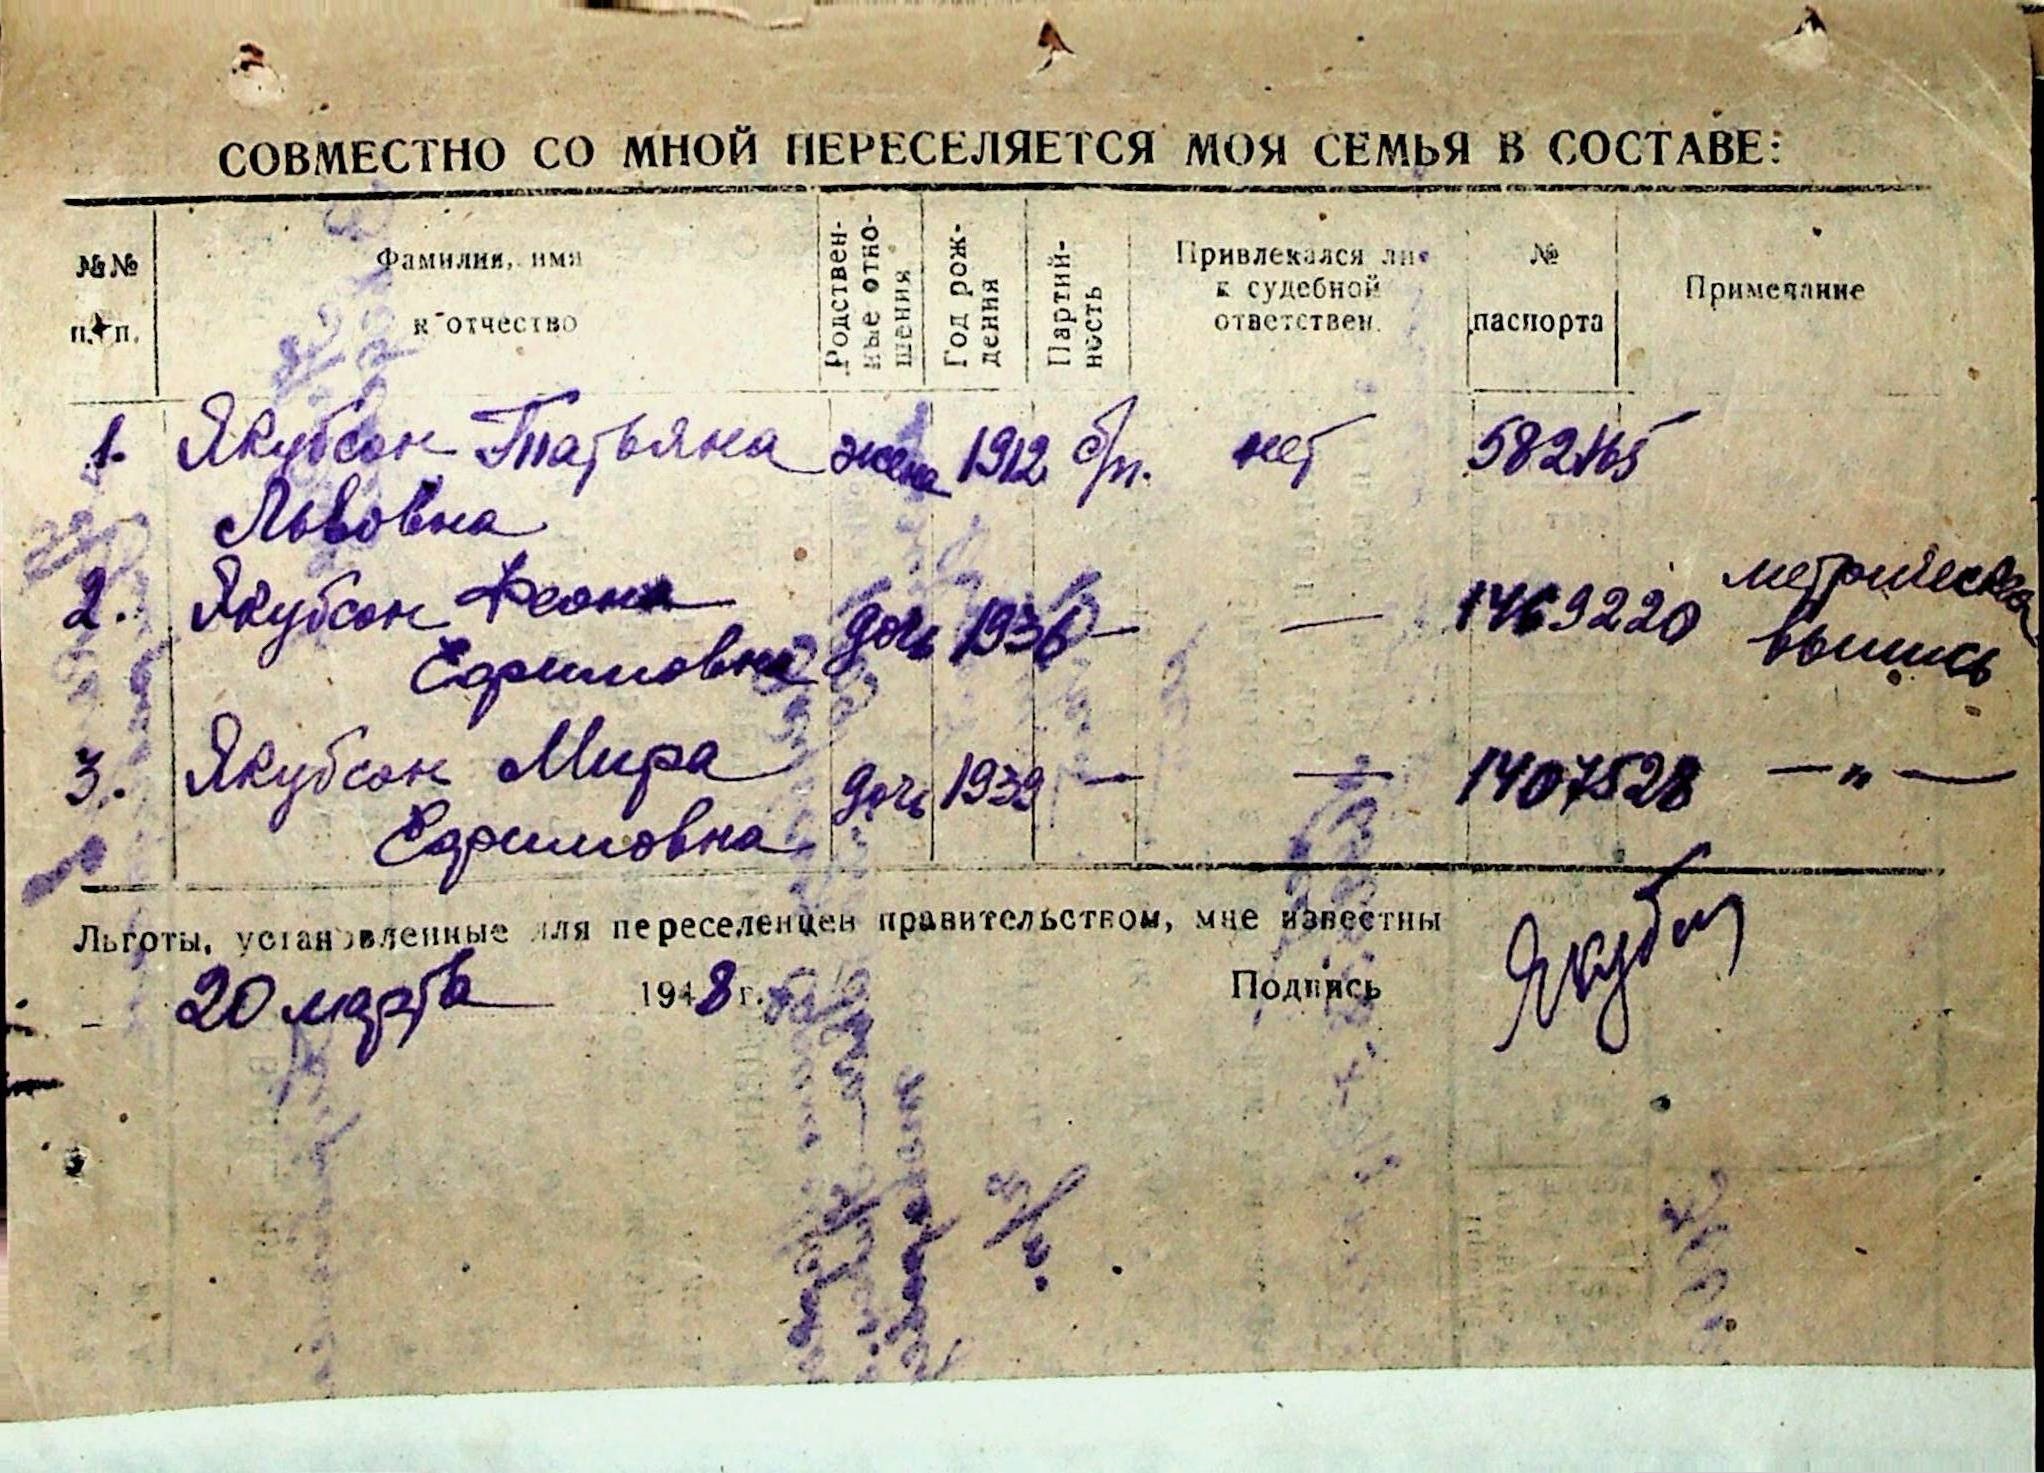 СОВМЕСТНО СО МНОЙ ПЕРЕСЕЛЯЕТСЯ МОЯ СЕМЬЯ В СОСТАВЕ:
№№ п. п.
Фамилия, имя и отчество
Родствен-ные отно-шения
Год рож-дения
Партий-ность
Привлекался ли к судебной ответствен.
№ паспорта
Примечание
1. Якубсон Татьяна жена 1912 б/п. нет
Львовна
2. Якубсон дочь 1936 — — 1469220 метрическая
Ефимовна выпись
3. Якубсон Мира дочь 1939 — — 1407528 — " —
Ефимовна
Льготы, установленные для переселенцев правительством, мне известны
20 марта 1948 г. Подпись Якубсон